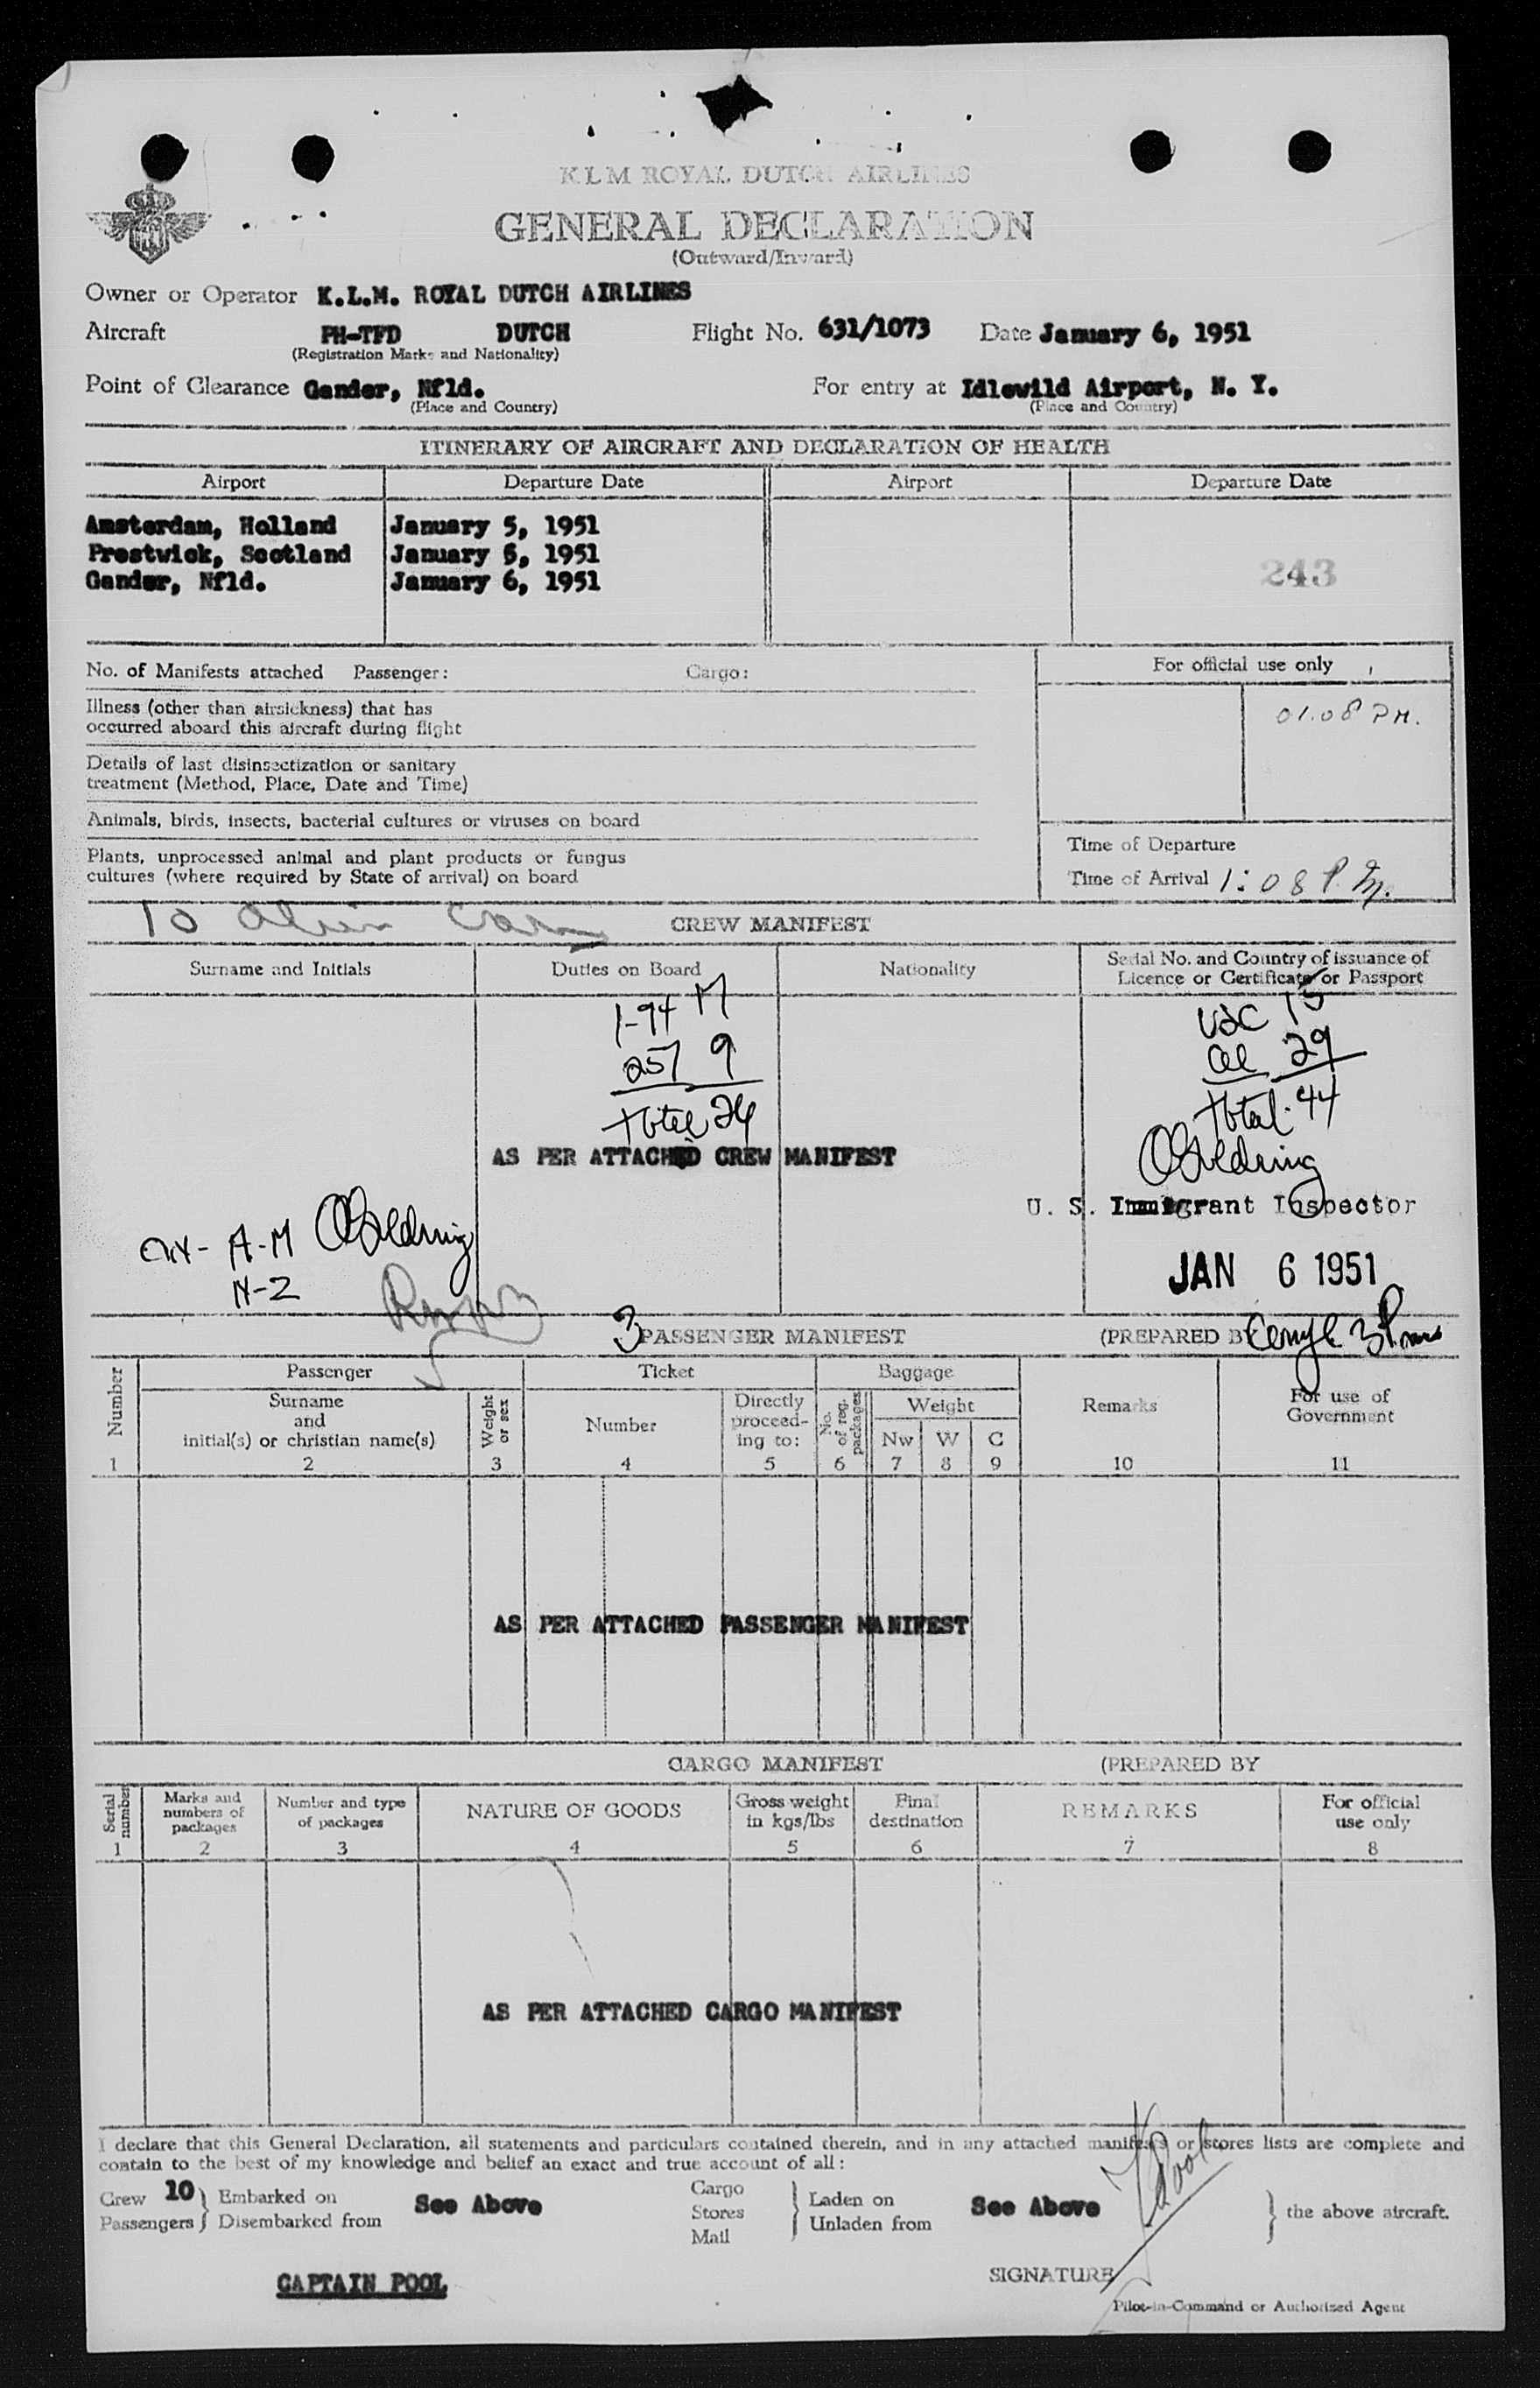 K L M ROYAL DUTCH AIRLINES
GENERAL DECLARATION
(Outward/Inward)
Owner or Operator K.L.M. ROYAL DUTCH AIRLINES
Aircraft PH-TFD DUTCH Flight No. 631/1073 Date January 6, 1951
(Registration Marks and Nationality)
Point of Clearance Gander, Nfld. For entry at Idlewild Airport, N. Y.
(Place and Country) (Place and Country)
ITINERARY OF AIRCRAFT AND DECLARATION OF HEALTH
Airport Departure Date Airport Departure Date
Amsterdam, Holland January 5, 1951
Prestwick, Scotland January 5, 1951
Gander, Nfld. January 6, 1951
243
No. of Manifests attached Passenger: Cargo: For official use only
Illness (other than airsickness) that has
occurred aboard this aircraft during flight
01.08 PM.
Details of last disinsectization or sanitary
treatment (Method, Place, Date and Time)
Animals, birds, insects, bacterial cultures or viruses on board
Plants, unprocessed animal and plant products or fungus
cultures (where required by State of arrival) on board
Time of Departure
Time of Arrival 1:08 P.M.
10 Alien
CREW MANIFEST
Surname and Initials Duties on Board Nationality Serial No. and Country of issuance of
Licence or Certificate or Passport
1-94 M
257 9
Total 24
USC 15
al 29
Total 44
AS PER ATTACHED CREW MANIFEST
U. S. Immigrant Inspector
A-M
N-Z
JAN 6 1951
3 PASSENGER MANIFEST (PREPARED BY
Number Passenger Ticket Baggage Remarks For use of
Government
Surname
and
initial(s) or christian name(s)
Weight
or sex
Number Directly
proceed-
ing to:
No.
of reg.
packages
Weight
Nw W C
1 2 3 4 5 6 7 8 9 10 11
AS PER ATTACHED PASSENGER MANIFEST
CARGO MANIFEST (PREPARED BY
Serial
number
Marks and
numbers of
packages
Number and type
of packages
NATURE OF GOODS
Gross weight
in kgs/lbs
Final
destination
REMARKS
For official
use only
1 2 3 4 5 6 7 8
AS PER ATTACHED CARGO MANIFEST
I declare that this General Declaration, all statements and particulars contained therein, and in any attached manifests or stores lists are complete and
contain to the best of my knowledge and belief an exact and true account of all:
Crew 10 Embarked on
Passengers Disembarked from
See Above
Cargo
Stores
Mail
Laden on
Unladen from
See Above
the above aircraft.
Pool
CAPTAIN POOL
SIGNATURE
Pilot-in-Command or Authorized Agent